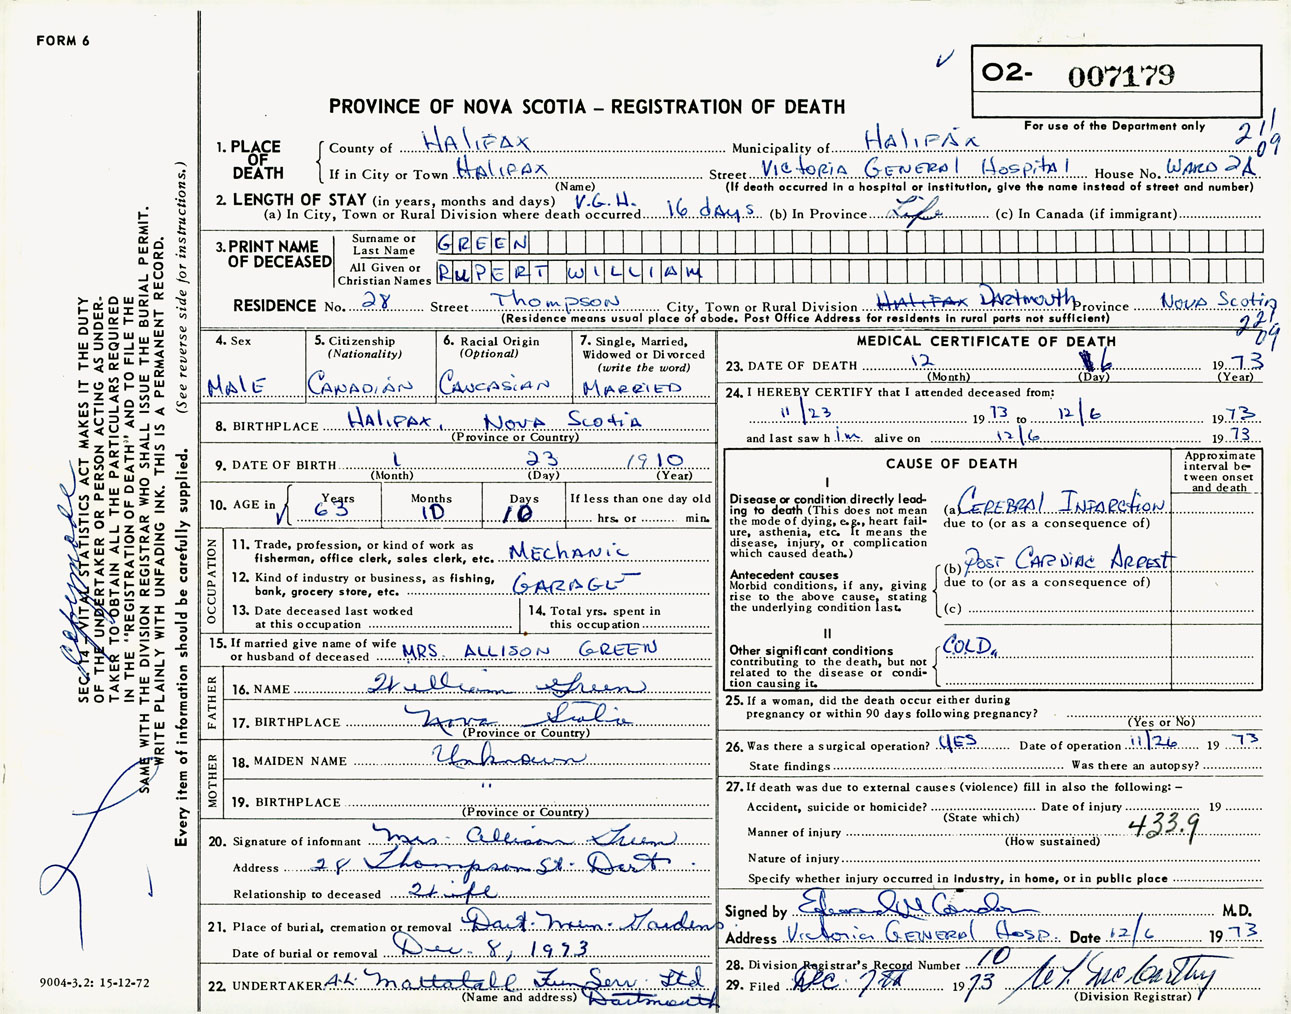 FORM 6
O2- 007179
PROVINCE OF NOVA SCOTIA – REGISTRATION OF DEATH
For use of the Department only
211
09
1. PLACE OF DEATH
County of HALIFAX Municipality of HALIFAX
If in City or Town HALIFAX Street VICTORIA GENERAL HOSPITAL House No. WARD 2A
(Name) (If death occurred in a hospital or institution, give the name instead of street and number)
2. LENGTH OF STAY (in years, months and days) V.G.H.
(a) In City, Town or Rural Division where death occurred 16 days (b) In Province Life (c) In Canada (if immigrant)
3. PRINT NAME OF DECEASED
Surname or Last Name GREEN
All Given or Christian Names RUPERT WILLIAM
RESIDENCE No. 28 Street Thompson City, Town or Rural Division HALIFAX DARTMOUTH Province NOVA SCOTIA
(Residence means usual place of abode. Post Office Address for residents in rural parts not sufficient)
221
09
4. Sex
MALE
5. Citizenship
(Nationality)
CANADIAN
6. Racial Origin
(Optional)
CAUCASIAN
7. Single, Married,
Widowed or Divorced
(write the word)
MARRIED
8. BIRTHPLACE HALIFAX, NOVA SCOTIA
(Province or Country)
9. DATE OF BIRTH 1 23 1910
(Month) (Day) (Year)
10. AGE in Years 63 Months 10 Days 10
If less than one day old
hrs. or min.
OCCUPATION
11. Trade, profession, or kind of work as
fisherman, office clerk, sales clerk, etc. MECHANIC
12. Kind of industry or business, as fishing,
bank, grocery store, etc. GARAGE
13. Date deceased last worked
at this occupation
14. Total yrs. spent in
this occupation
15. If married give name of wife
or husband of deceased MRS. ALLISON GREEN
FATHER
16. NAME William Green
17. BIRTHPLACE Nova Scotia
(Province or Country)
MOTHER
18. MAIDEN NAME Unknown
19. BIRTHPLACE "
(Province or Country)
20. Signature of informant Mrs. Allison Green
Address 28 Thompson St. Dart
Relationship to deceased Wife
21. Place of burial, cremation or removal Dart. Mem. Gardens
Date of burial or removal Dec. 8, 1973
22. UNDERTAKER A.L. Mattatall Fun Serv. Ltd
(Name and address) Dartmouth
MEDICAL CERTIFICATE OF DEATH
23. DATE OF DEATH 12 6 1973
(Month) (Day) (Year)
24. I HEREBY CERTIFY that I attended deceased from:
11/23 1973 to 12/6 1973
and last saw him alive on 12/6 1973
CAUSE OF DEATH
Approximate interval between onset and death
I
Disease or condition directly lead-
ing to death (This does not mean
the mode of dying, e.g., heart fail-
ure, asthenia, etc. It means the
disease, injury, or complication
which caused death.)
(a) CEREBRAL INFARCTION
due to (or as a consequence of)
Antecedent causes
Morbid conditions, if any, giving
rise to the above cause, stating
the underlying condition last.
(b) POST CARDIAC ARREST
due to (or as a consequence of)
(c)
II
Other significant conditions
contributing to the death, but not
related to the disease or condi-
tion causing it.
COLD.
25. If a woman, did the death occur either during
pregnancy or within 90 days following pregnancy?
(Yes or No)
26. Was there a surgical operation? YES Date of operation 11/26 1973
State findings Was there an autopsy?
27. If death was due to external causes (violence) fill in also the following: –
Accident, suicide or homicide? Date of injury 19
(State which)
433.9
Manner of injury
(How sustained)
Nature of injury
Specify whether injury occurred in industry, in home, or in public place
Signed by M.D.
Address VICTORIA GENERAL HOSP. Date 12/6 1973
28. Division Registrar's Record Number 10
29. Filed Dec. 7th 1973 McCarthy
(Division Registrar)
SEC. 14 – VITAL STATISTICS ACT MAKES IT THE DUTY
OF THE UNDERTAKER OR PERSON ACTING AS UNDER-
TAKER TO OBTAIN ALL THE PARTICULARS REQUIRED
IN THE "REGISTRATION OF DEATH" AND TO FILE THE
SAME WITH THE DIVISION REGISTRAR WHO SHALL ISSUE THE BURIAL PERMIT.
WRITE PLAINLY WITH UNFADING INK. THIS IS A PERMANENT RECORD.
Every item of information should be carefully supplied. (See reverse side for instructions.)
9004-3.2: 15-12-72